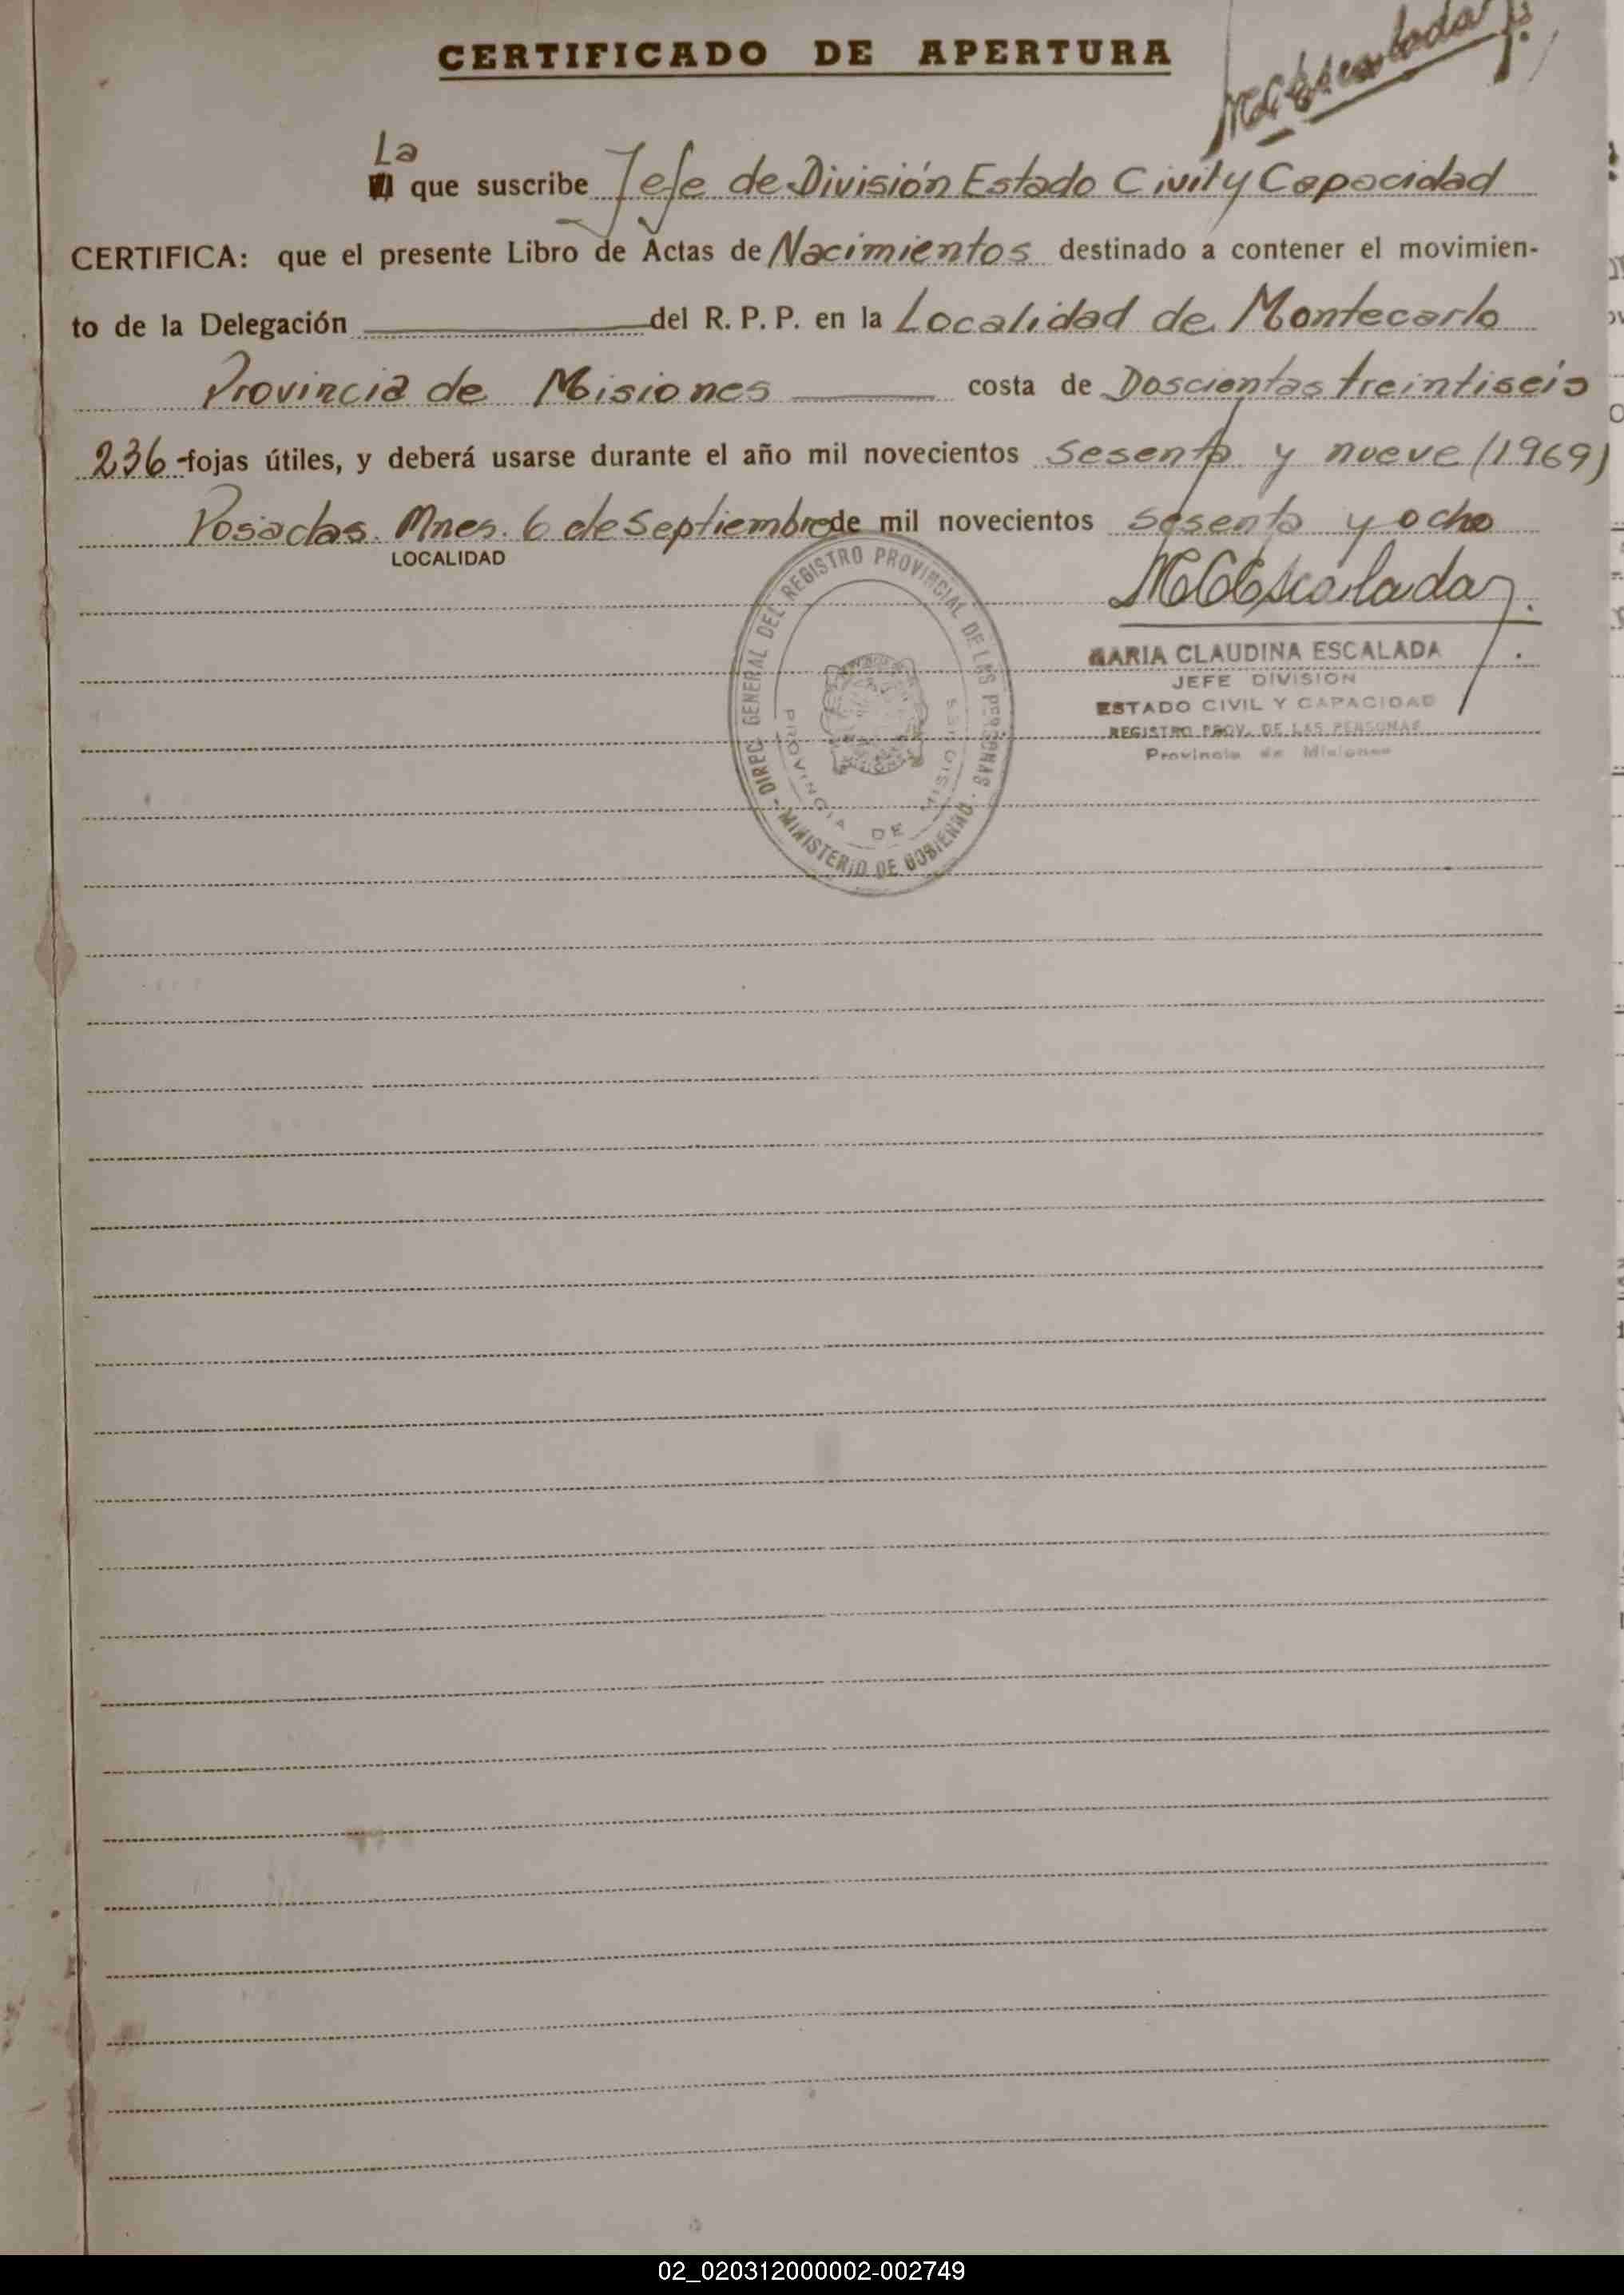 CERTIFICADO DE APERTURA
MCEscalada
La
que suscribe Jefe de División Estado Civil y Capacidad
CERTIFICA: que el presente Libro de Actas de Nacimientos destinado a contener el movimien-
to de la Delegación del R. P. P. en la Localidad de Montecarlo
Provincia de Misiones costa de Doscientas treintiseis
236 - fojas útiles, y deberá usarse durante el año mil novecientos sesenta y nueve (1969)
Posadas. Mnes. 6 de Septiembre de mil novecientos sesenta y ocho
LOCALIDAD
MCEscalada
MARIA CLAUDINA ESCALADA
JEFE DIVISION
ESTADO CIVIL Y CAPACIDAD
REGISTRO PROV. DE LAS PERSONAS
Provincia de Misiones
DIREC. GENERAL DEL REGISTRO PROVINCIAL DE LAS PERSONAS - MINISTERIO DE GOBIERNO -
PROVINCIA DE MISIONES
02_020312000002-002749